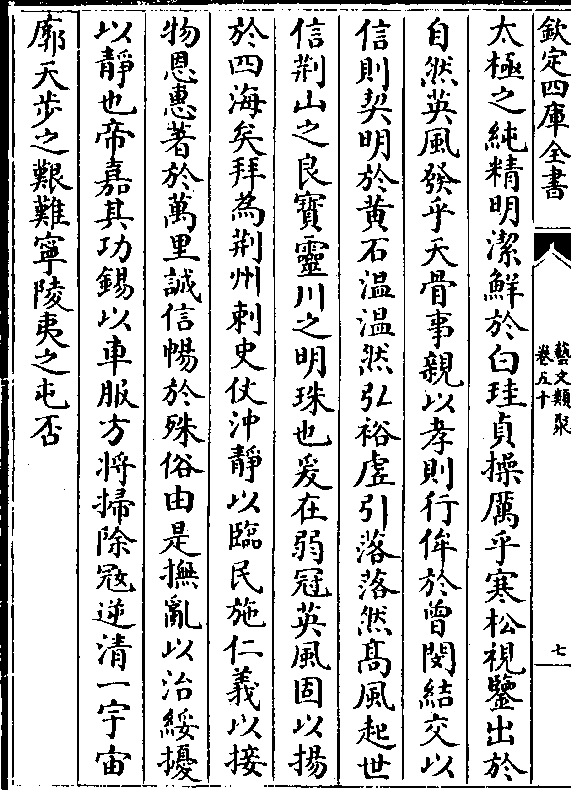 欽定四庫全書
藝文類聚
卷五十
七
太極之純精明潔鮮於白珪貞操厲乎寒松視鑒出於
自然英風發乎天骨事親以孝則行侔於曾閔結交以
信則契明於黄石温温然弘裕虚引落落然髙風起世
信荆山之良寶靈川之明珠也爰在弱冠英風固以揚
於四海矣拜為荆州刺史仗沖靜以臨民施仁義以接
物恩惠著於萬里誠信暢於殊俗由是撫亂以治綏擾
以靜也帝嘉其功錫以車服方將掃除寇逆清一宇宙
廓天步之艱難寧陵夷之屯否